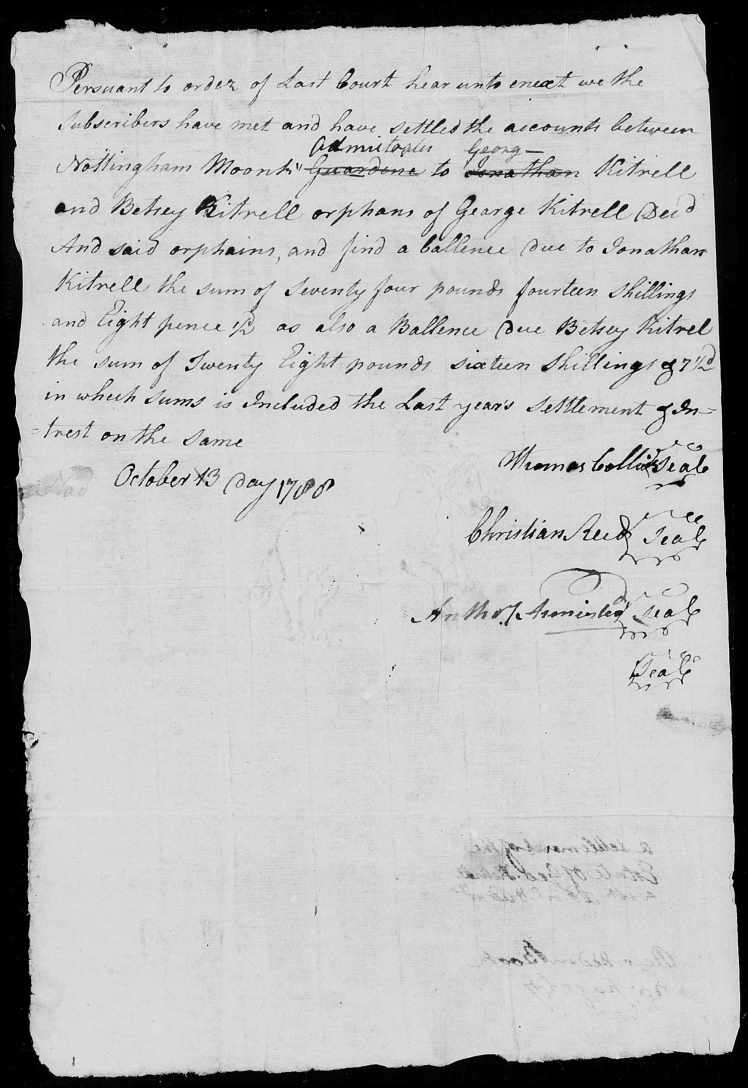 Persuant to order of Last Court hear unto enext we the
Subscribers have met and have settled the accounts between
Admittrater Georg
Nottingham Moonk Guardine to Jonathan Kitrell
and Betsey Kitrell orphans of George Kitrell Decd
And said orphains, and find a ballence due to Jonathan
Kitrell the sum of Seventy four pounds fourteen Shillings
and Eight pence 1/2 as also a Ballence due Betsey Kitrel
the sum of Twenty Eight pounds sixteen Shillings & 7 1/2d
in whech sums is Included the Last year's settlement & In=
=trest on the same
October 13 day 1788
Thomas Collins Seal
Christian Reed Seal
Anthoy Armisted Seal
Seal